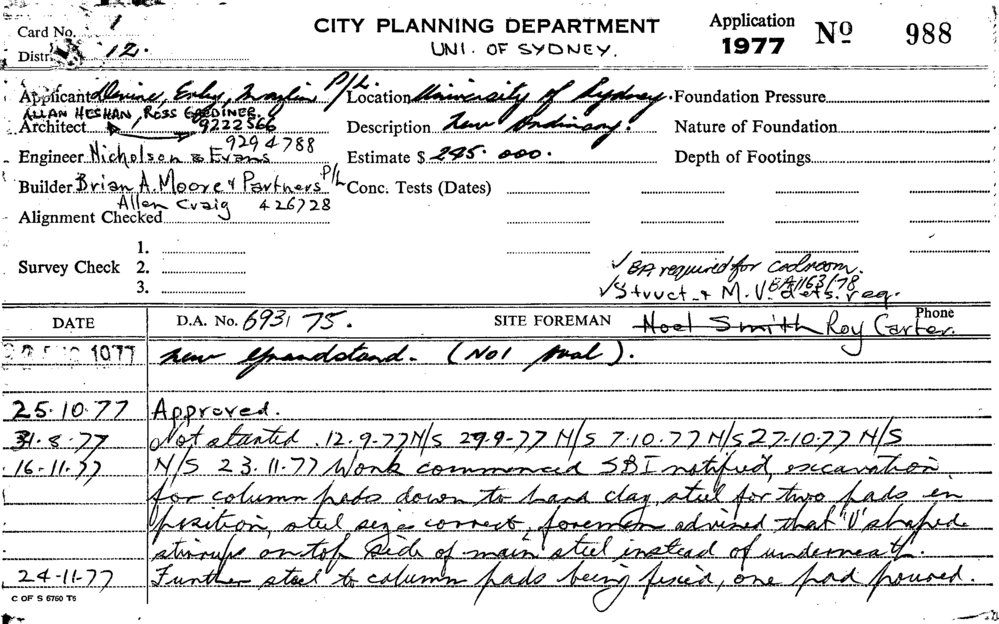 Card No. 1 CITY PLANNING DEPARTMENT Application No 988
Distr. 12. UNI. OF SYDNEY. 1977
Applicant Devine, Erby, Mazlin P/L Location University of Sydney. Foundation Pressure
ALLAN HESHAN, ROSS GARDINER,
Architect 9222566 Description New Ordinary. Nature of Foundation
9294788
Engineer Nicholson & Evans Estimate $ 245.000. Depth of Footings
Builder Brian A. Moore & Partners P/L Conc. Tests (Dates)
Allen Craig 426728
Alignment Checked
1.
Survey Check 2. ✓ BA required for coolroom.
BA 1163/78
3. ✓ Struct. & M.V. dets. req.
DATE D.A. No. 693/75. SITE FOREMAN Noel Smith Roy Carter. Phone
1977 New Grandstand. (No1 Oval).
25.10.77 Approved.
31.8.77 Not started. 12.9.77 N/S 29.9.77 N/S 7.10.77 N/S 27.10.77 N/S
16.11.77 N/S 23.11.77 Work commenced SBI notified, excavation
for column pads down to hard clay, steel for two pads in
position, steel sizes correct, foreman advised that 'U' shaped
stirrups on top side of main steel instead of underneath.
24-11-77 Further steel to column pads being fixed, one pad poured.
C OF S 6760 T5